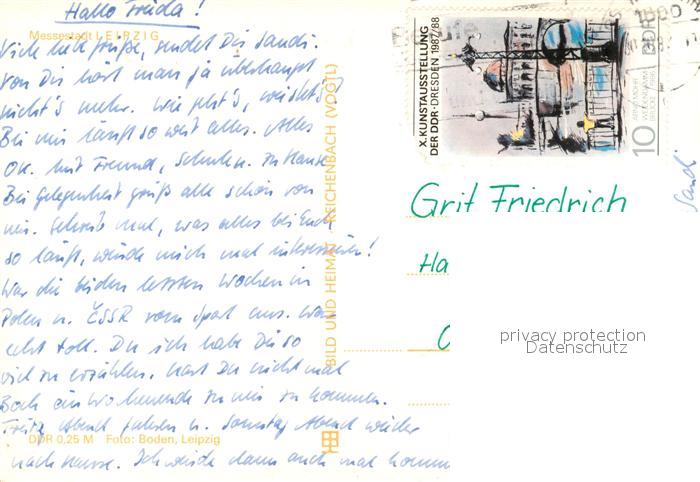 Hallo Frieda!
Messestadt LEIPZIG
Viele liebe Grüße, sendet Dir Sandi.
Von Dir hört man ja überhaupt
nichts mehr. Wie geht's, wie steht's?
Bei mir läuft so weit alles. Alles
OK. mit Freund, Schule u. zu Hause.
Bei Gelegenheit grüß alle schön von
mir. Schreib mal, was alles bei Euch
so läuft, würde mich mal interessieren!
War die beiden letzten Wochen in
Polen u. ČSSR vom Sport aus. War
echt toll. Du ich habe Dir so
viel zu erzählen. Hast Du nicht mal
Bock ein Wochenende zu mir zu kommen.
Freitag Abend fahren u. Sonntag Abend wieder
DDR 0,25 M Foto: Boden, Leipzig
nach Hause. Ich würde dann auch mal komm
BILD UND HEIMAT REICHENBACH (VOGTL)
X. KUNSTAUSSTELLUNG
DER DDR · DRESDEN 1987/88
10 DDR
ARNO MOHR
BRÜCKE
1986
Sandi
Grit Friedrich
Ha
privacy protection
Datenschutz